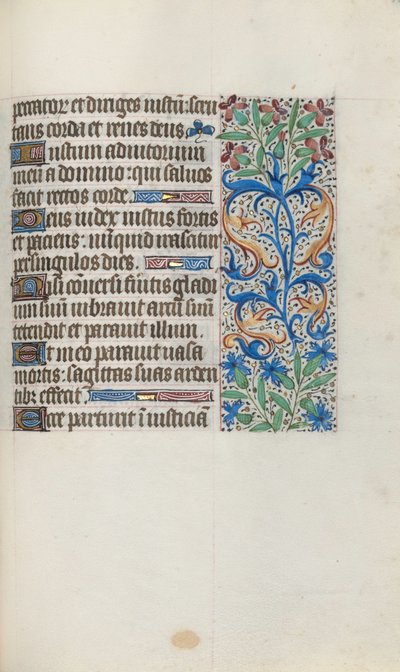 peccator et diriges iustū: scru
tans corda et renes deus
Iustum adiutorium
meū a domino: qui saluos
facit rectos corde.
Deus iudex iustus fortis
et paciens: nūquid irascitur
per singulos dies.
Nisi cōuersi fueritis gladi
um suū uibrauit arcū suū
tetendit et parauit illum
Et in eo parauit uasa
mortis: sagittas suas arden
tibꝫ effecit
Ecce parturit ī iusticiā